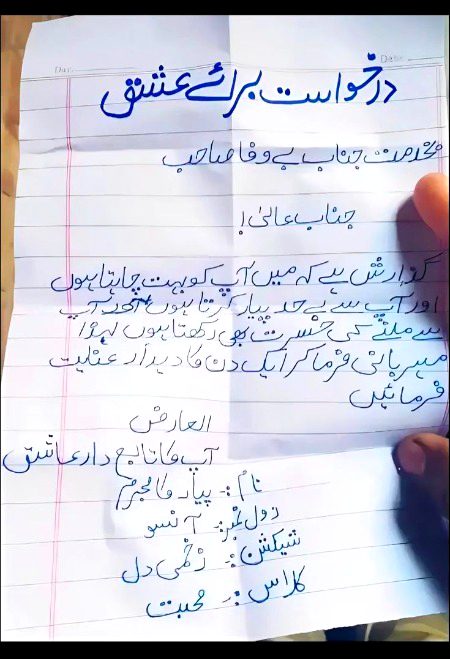 Date
Date
درخواست برائے عشق
بخدمت جناب بے وفا صاحب
جناب عالیٰ!
گزارش ہے کہ میں آپ کو بہت چاہتا ہوں
اور آپ سے بے حد پیار کرتا ہوں اور آپ
سے ملنے کی حسرت بھی رکھتا ہوں لہذا
مہربانی فرما کر ایک دن کا دیدار عنایت
فرمائیں
العارض
آپ کا تابع دار عاشق
نام :- پیار کا مجرم
رول نمبر :- آنسو
سیکشن :- زخمی دل
کلاس :- محبت